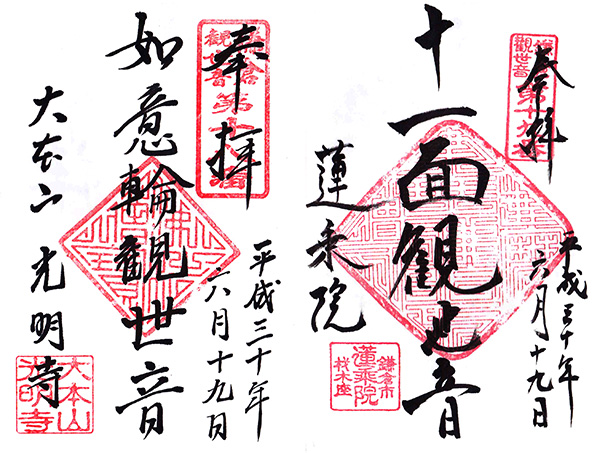 奉拝
十一面観世音
蓮乗院
平成三十年
六月十九日
鎌倉市
材木座
蓮乗院
奉拝
如意輪観世音
大本山 光明寺
平成三十年
六月十九日
大本山
光明寺